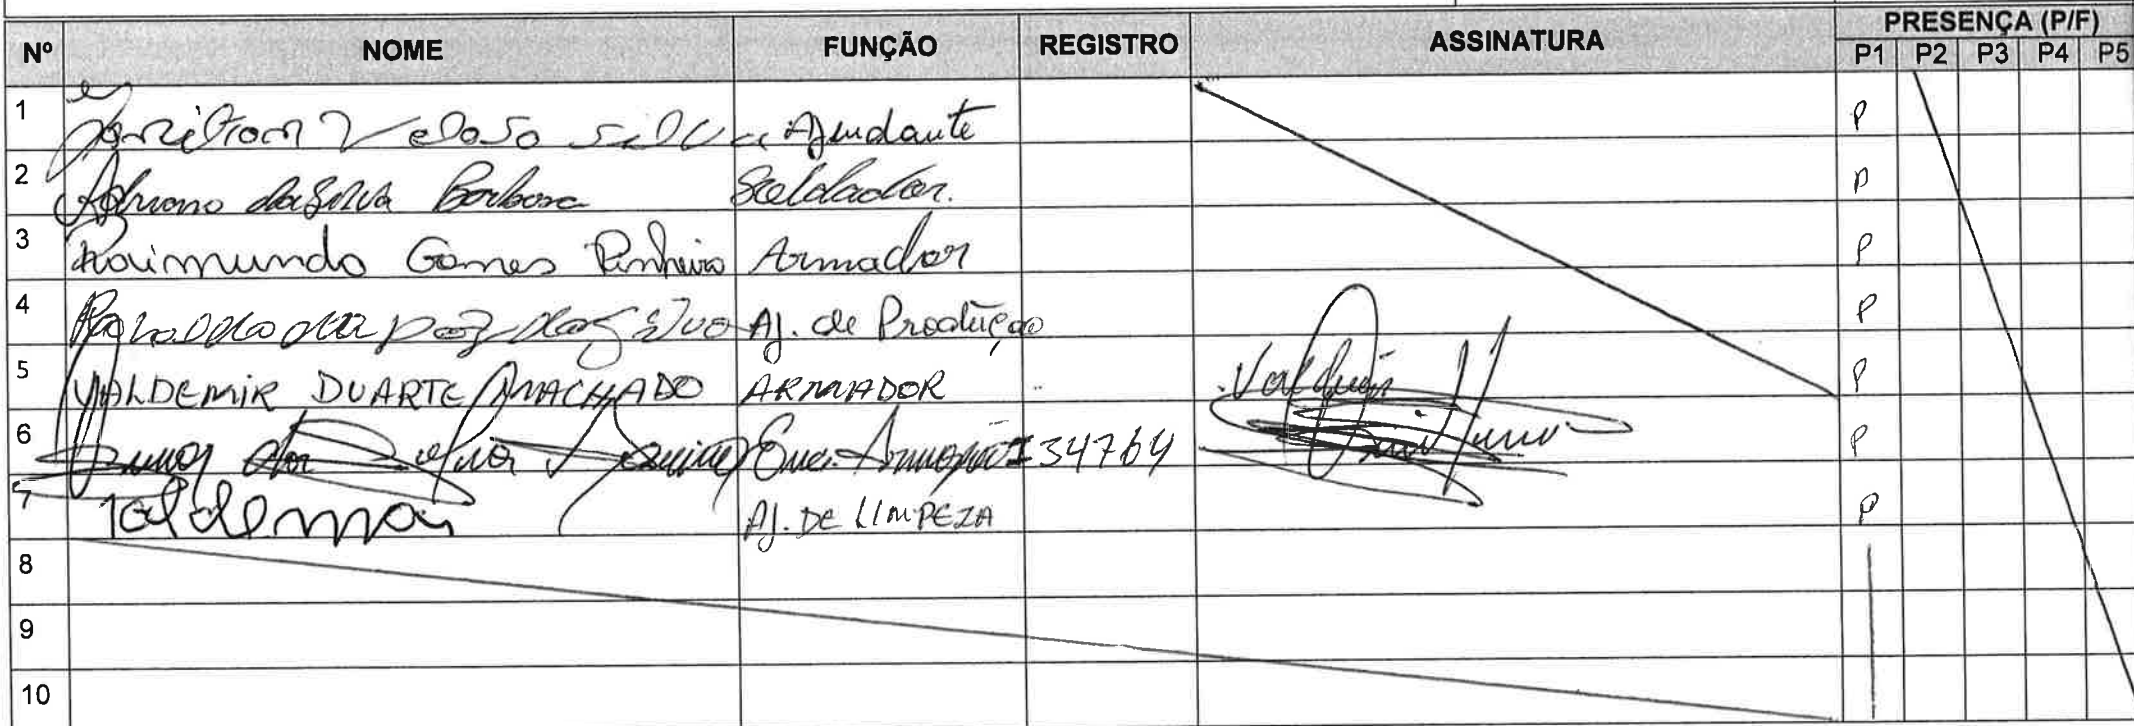 Nº NOME FUNÇÃO REGISTRO ASSINATURA PRESENÇA (P/F)
P1 P2 P3 P4 P5
1 Veloso Silva Ajudante P
2 Adriano da Silva Barbosa Soldador. P
3 Raimundo Gomes Pinheiro Armador P
4 da Silva Aj. de Produção P
5 VALDEMIR DUARTE MACHADO ARMADOR P
6 da Silva Enc. Armação 34764 P
7 Valdemar AJ. DE LIMPEZA P
8
9
10